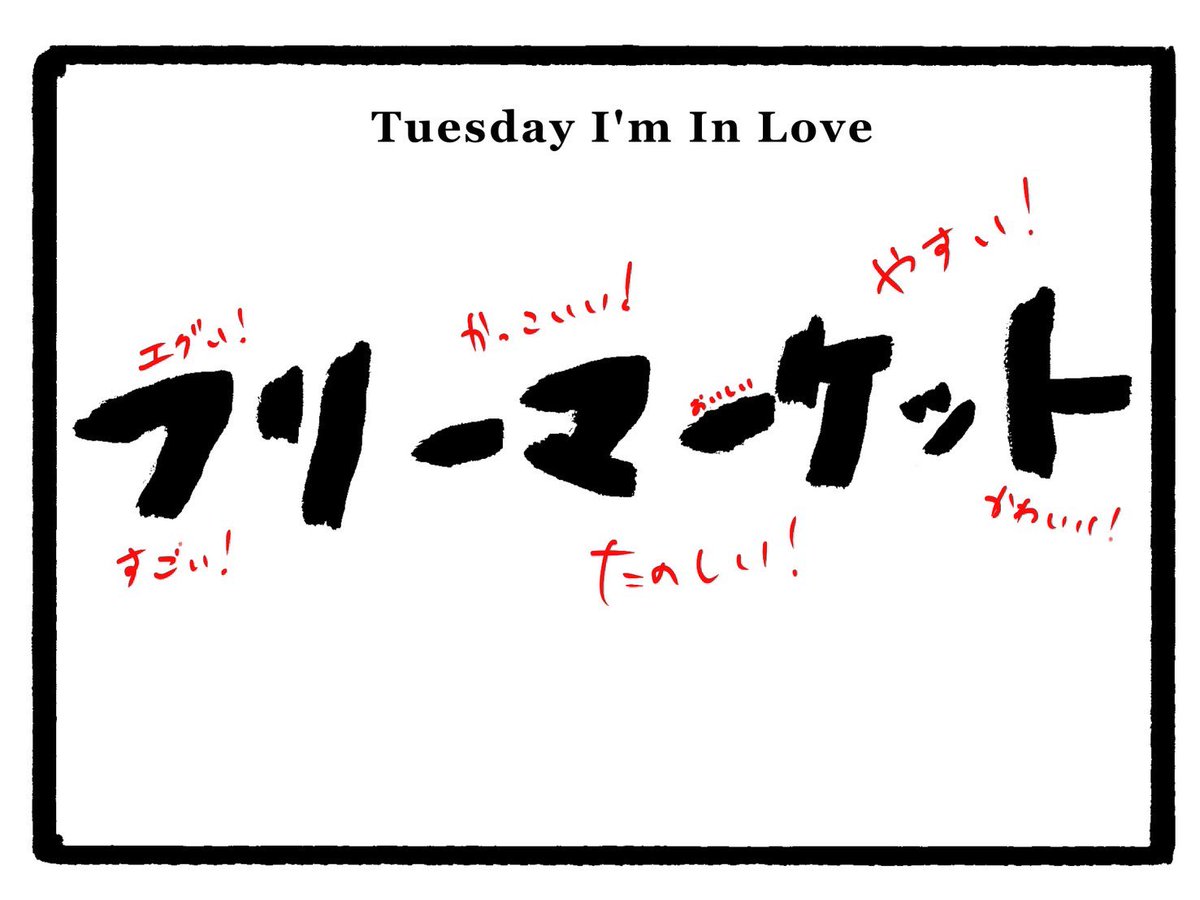 Tuesday I'm In Love
やすい!
かっこいい!
エグい!
おいしい
フリーマーケット
かわいい!
すごい!
たのしい!